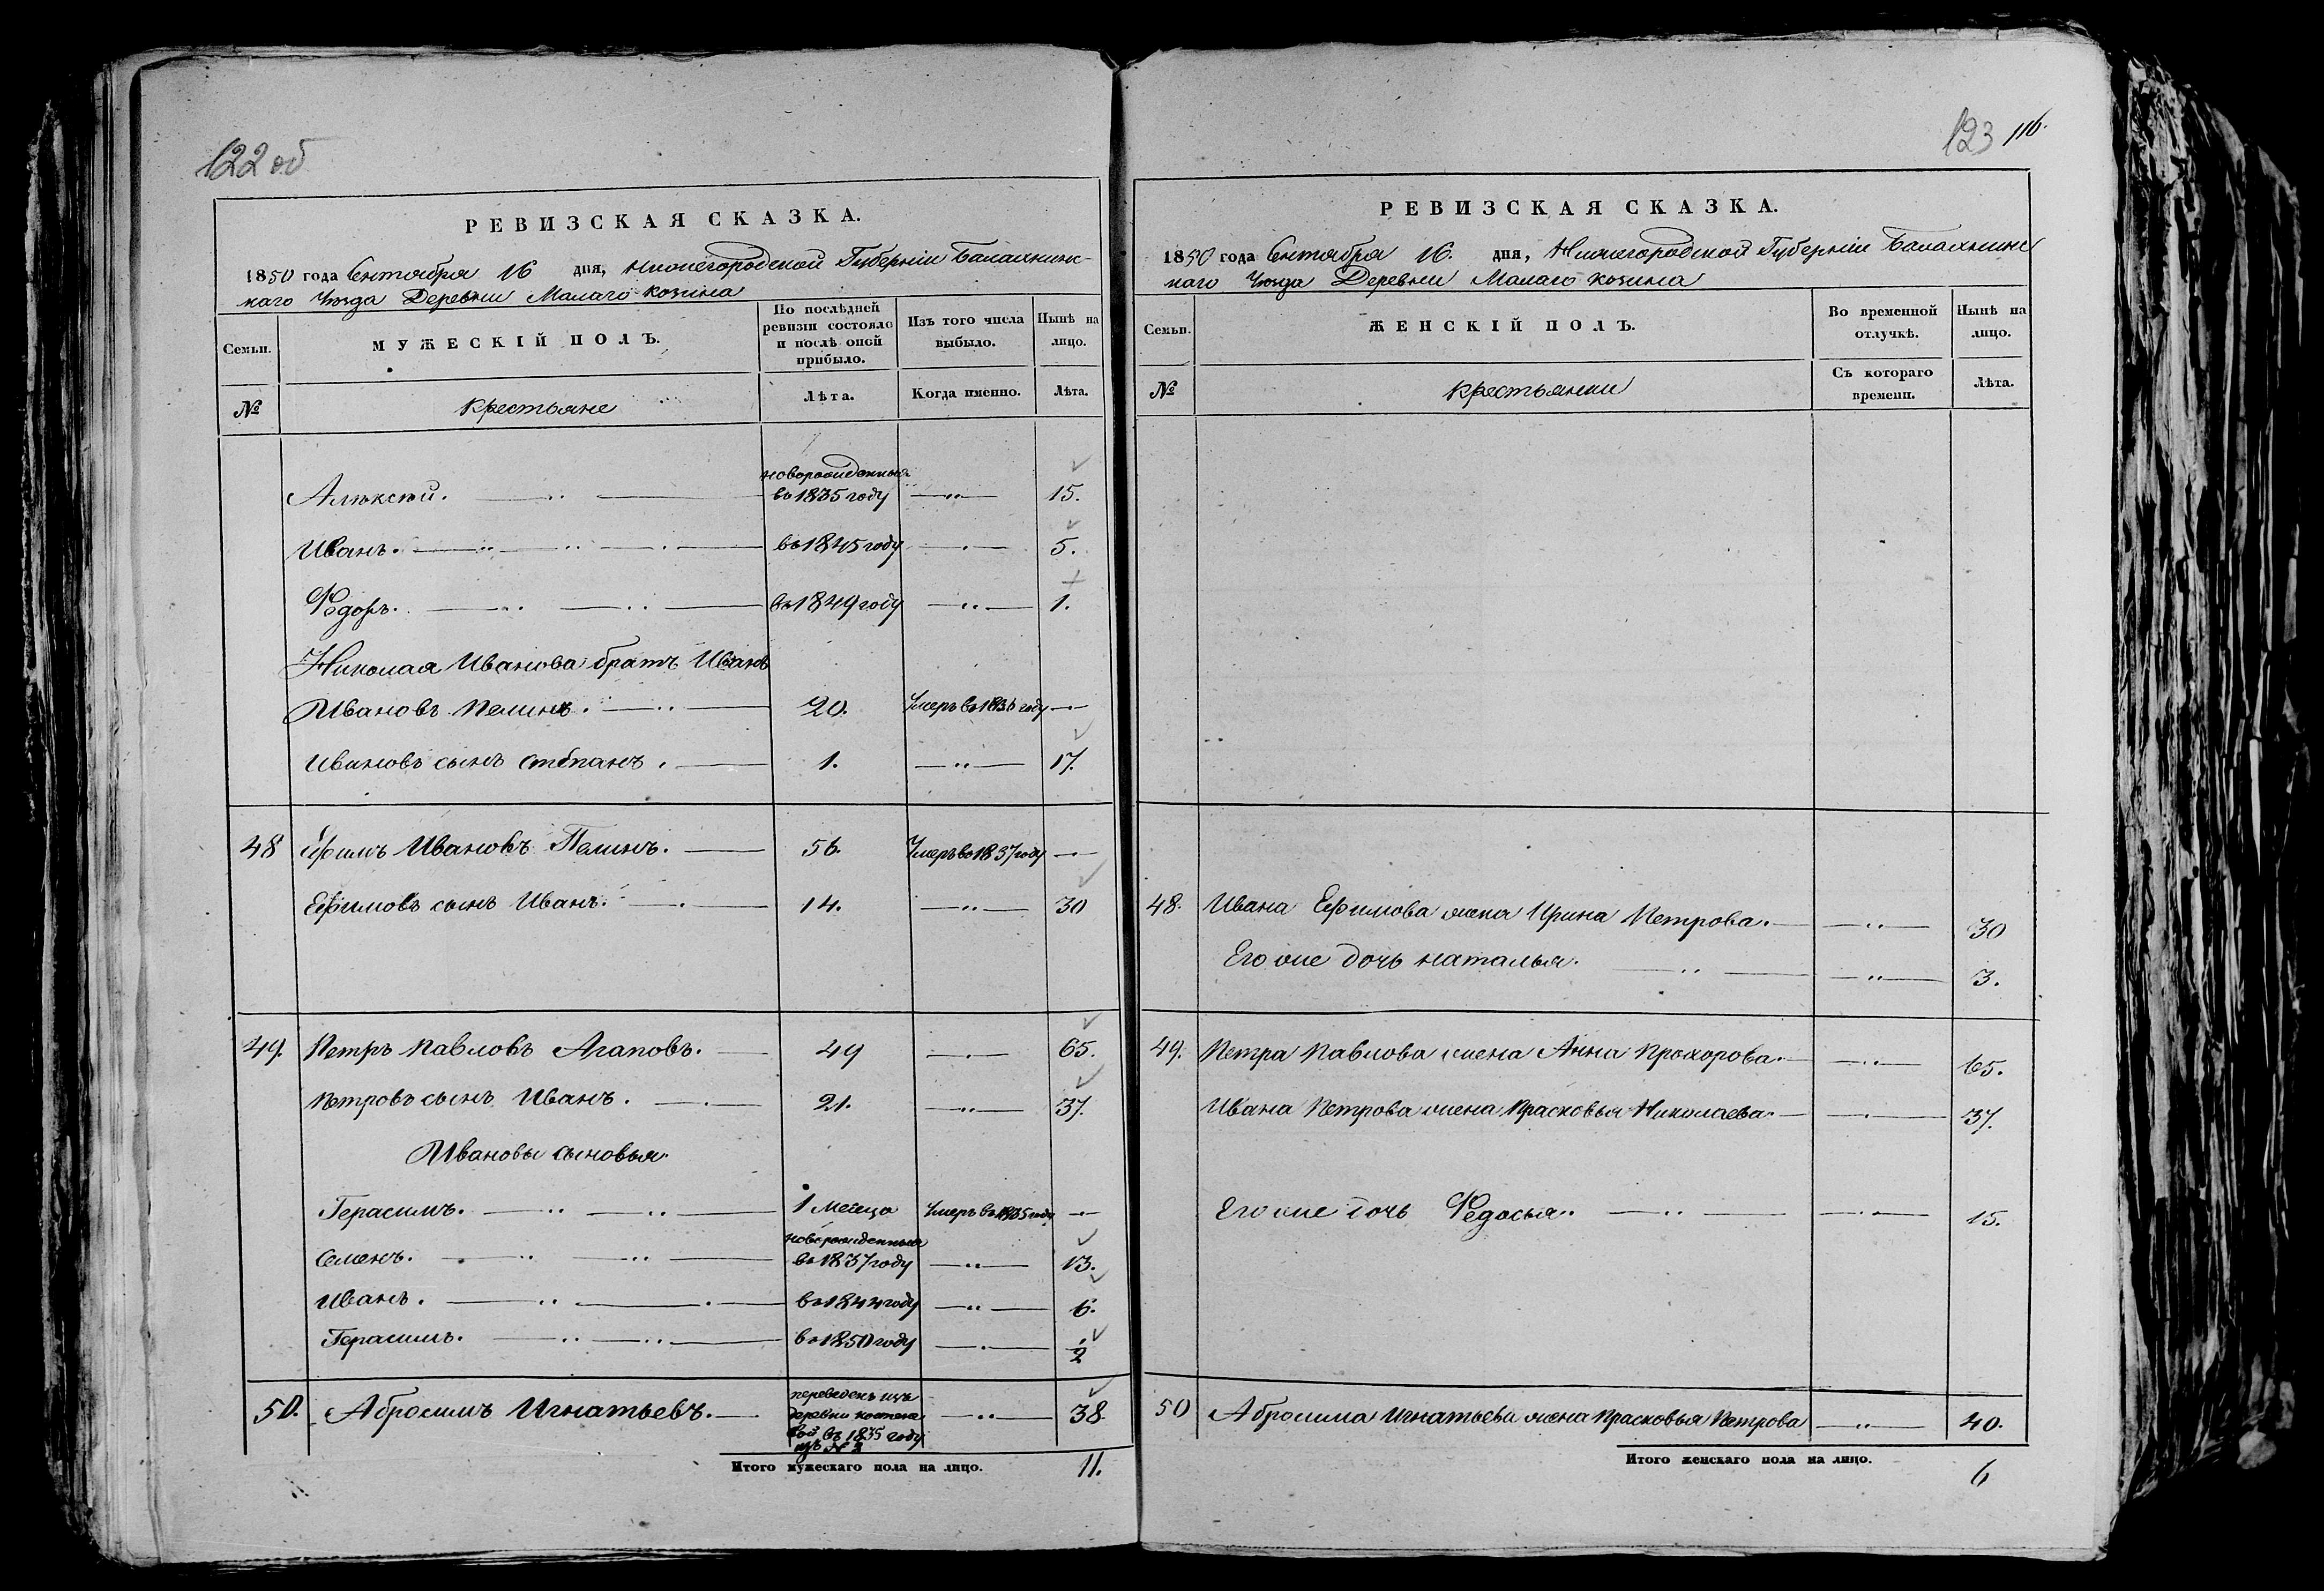 122 об
РЕВИЗСКАЯ СКАЗКА.
1850 года Сентября 16 дня, Нижегородской Губерніи Балахнинс-
каго Уезда Деревни Малаго Козина
Семьи.
МУЖЕСКІЙ ПОЛЪ.
По послѣдней
ревизіи состояло
и послѣ оной
прибыло.
Изъ того числа
выбыло.
Нынѣ на
лицо.
№
Крестьяне
Лѣта.
Когда именно.
Лѣта.
новорожденныя
Алѣксѣй. во 1835 году 15.
Иванъ. во 1845 году 5.
Федоръ. во 1849 году 1.
Николая Иванова братъ Иванъ
Ивановъ Пелинъ. 20. Умеръ въ 1836 году
Ивановъ сынъ Степанъ. 1. 17.
48 Ефимъ Ивановъ Пелинъ. 56. Умеръ во 1837 году
Ефимовъ сынъ Иванъ. 14. 30
49. Петръ Павловъ Агаповъ. 49 65.
Петровъ сынъ Иванъ. 21. 37.
Ивановы сыновья
Герасимъ. 1 месеца Умеръ въ 1835 году
новорожденныя
Семенъ. во 1837 году 13.
Иванъ. во 1844 году 6.
Герасимъ. во 1850 году ½
50. Абросимъ Игнатьевъ. переведенъ изъ
деревни
вой въ 1835 году 38.
изъ № 3
Итого мужескаго пола на лицо. 11.
123 116.
РЕВИЗСКАЯ СКАЗКА.
1850 года Сентября 16. дня, Нижегородской Губерніи Балахнинс
каго Уезда Деревни Малаго Козина
Семьи.
ЖЕНСКІЙ ПОЛЪ.
Во временной
отлучкѣ.
Нынѣ на
лицо.
№
Крестьянки
Съ котораго
времени.
Лѣта.
48. Ивана Ефимова жена Ирина Петрова. 30
Его же дочь Наталья. 3.
49. Петра Павлова жена Анна Прохорова. 65.
Ивана Петрова жена Прасковья Николаева. 37.
Его же дочь Федосья. 15.
50 Абросима Игнатьева жена Прасковья Петрова 40.
Итого женскаго пола на лицо. 6